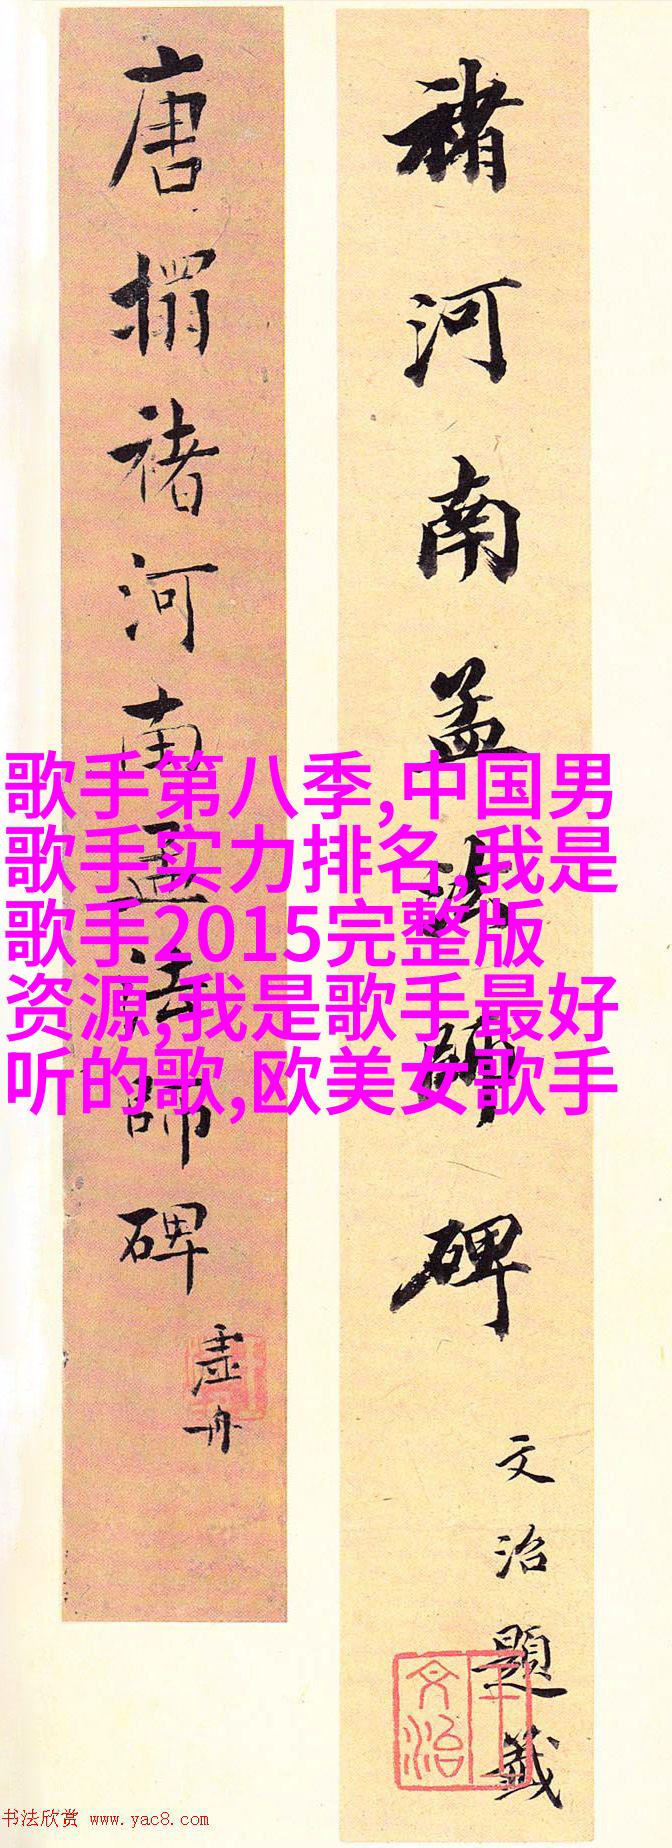 褚河南孟法師碑
文治題籖
唐搨褚河南孟法師碑
虛舟
歌手第八季,中国男
歌手实力排名,我是
歌手2015完整版
资源,我是歌手最好
听的歌,欧美女歌手
文治
书法欣赏 www.yac8.com